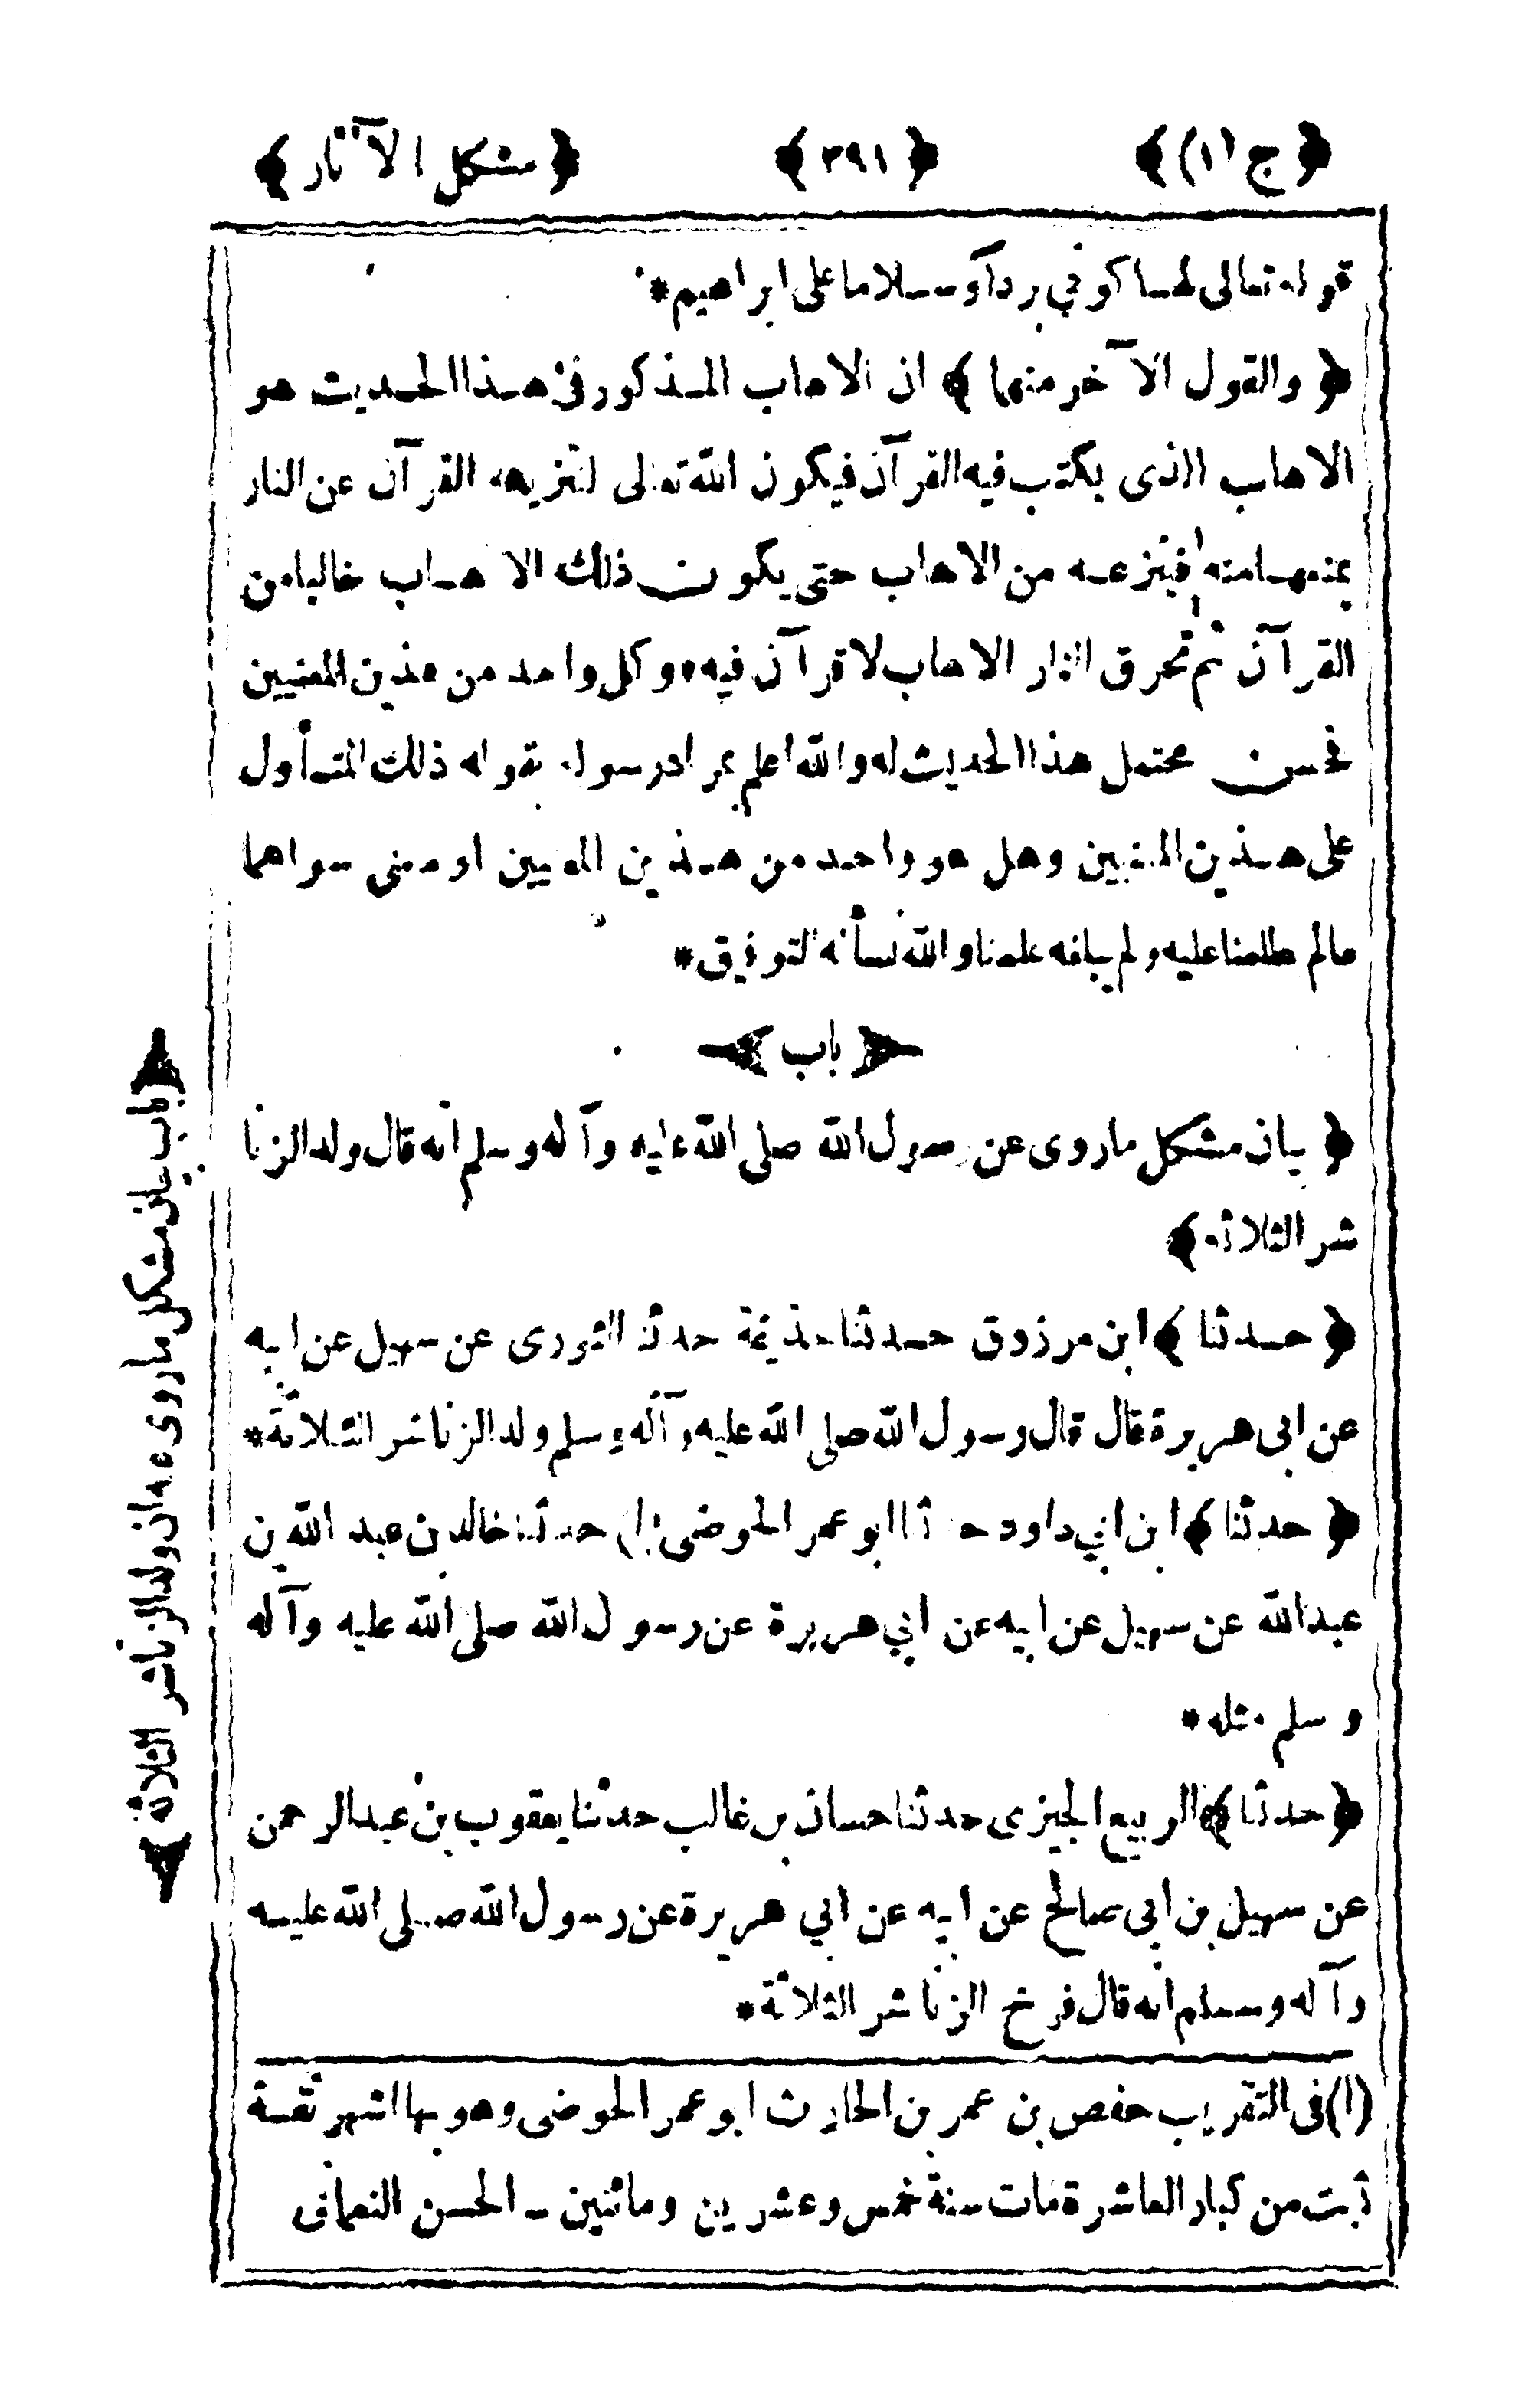 ﴿ ج (١) ﴾ ﴿ ٣٩١ ﴾ ﴿ مشكل الآثار ﴾
قوله تعالى لها كوني بردآ وسلاما على ابراهيم*
﴿ والقول الآخر منهما ﴾ ان الاهاب المذكور في هذا الحديث هو
الاهاب الذى يكتب فيه القرآن فيكون الله تعالى لتنزيهه القرآن عن النار
يمنعها منه فينزعه من الاهاب حتى يكون ذلك الاهاب خاليا من
القرآن ثم تحرق النار الاهاب لا قرآن فيه وكل واحد من هذين المعنيين
فحسن محتمل هذا الحديث له والله اعلم بمراد رسوله بقوله ذلك المتأول
على هذين المعنيين وهل هو واحد من هذين المعنيين او معنى سواهما
مالم طلعنا عليه ولم يبلغه علمنا والله نسأله التوفيق*
﴿ باب ﴾
﴿ بيان مشكل ماروى عن رسول الله صلى الله عليه وآله وسلم انه قال ولد الزنا
شر الثلاثة ﴾
﴿ حدثنا ﴾ ابن مرزوق حدثنا حذيفة حدثنا الثورى عن سهيل عن ابيه
عن ابى هريرة قال قال رسول الله صلى الله عليه وآله وسلم ولد الزنا شر الثلاثة*
﴿ حدثنا ﴾ ابن ابي داود حدثنا ابو عمر الحوضى (١) حدثنا خالد بن عبد الله بن
عبد الله عن سهيل عن ابيه عن ابي هريرة عن رسول الله صلى الله عليه وآله
وسلم مثله*
﴿ حدثنا ﴾ الربيع الجيزى حدثنا حسان بن غالب حدثنا يعقوب بن عبد الرحمن
عن سهيل بن ابى صالح عن ابيه عن ابي هريرة عن رسول الله صلى الله عليه
وآله وسلم انه قال فرخ الزنا شر الثلاثة*
(١) فى التقريب حفص بن عمر بن الحارث ابو عمر الحوضى وهو بها اشهر ثقة
ثبت من كبار العاشرة مات سنة خمس وعشرين ومائتين ــ الحسن النعمانى
﴿ باب بيان مشكل ماروى عنه ان ولد الزنا شر الثلاثة ﴾